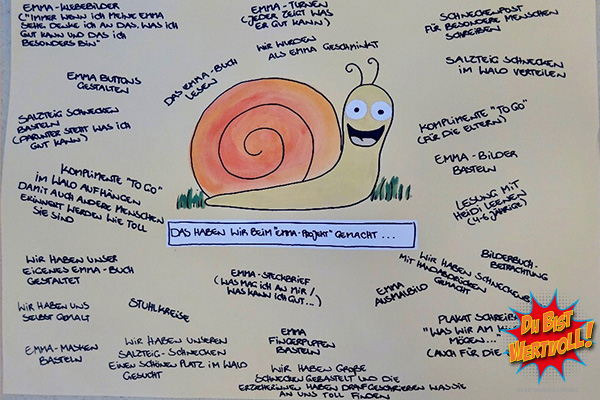 EMMA-KLEBEBILDER
("IMMER WENN ICH MEINE EMMA
SEHE DENKE ICH AN DAS, WAS ICH
GUT KANN UND DAS ICH
BESONDERS BIN"
EMMA-TURNEN
(JEDER ZEIGT WAS
ER GUT KANN)
SCHNECKENPOST
FÜR BESONDERE MENSCHEN
SCHREIBEN
WIR WURDEN
ALS EMMA GESCHMINKT
DAS EMMA-BUCH
LESEN
SALZTEIG SCHNECKEN
IM WALD VERTEILEN
EMMA BUTTONS
GESTALTEN
SALZTEIG SCHNECKEN
BASTELN
(DARUNTER STEHT WAS ICH
GUT KANN)
KOMPLIMENTE "TO GO"
(FÜR DIE ELTERN)
EMMA-BILDER
BASTELN
KOMPLIMENTE "TO GO"
IM WALD AUFHÄNGEN
DAMIT AUCH ANDERE MENSCHEN
ERINNERT WERDEN WIE TOLL
SIE SIND
LESUNG MIT
HEIDI LEENEN
(4-6 JÄHRIGE)
DAS HABEN WIR BEIM "EMMA-PROJEKT" GEMACHT ...
WIR HABEN UNSER
EIGENES EMMA-BUCH
GESTALTET
EMMA-STECKBRIEF
(WAS MAG ICH AN MIR /
WAS KANN ICH GUT...)
WIR HABEN
MIT HANDABDRÜCKEN
GEMACHT
BILDERBUCH-
BETRACHTUNG
EMMA
AUSMALBILD
WIR HABEN UNS
SELBST GEMALT
STUHLKREISE
PLAKAT
"WAS WIR AM
MÖGEN..."
(AUCH FÜR DIE
EMMA-MASKEN
BASTELN
WIR HABEN UNSEREN
SALZTEIG-SCHNECKEN
EINEN SCHÖNEN PLATZ IM WALD
GESUCHT
EMMA
FINGERPUPPEN
BASTELN
WIR HABEN GROßE
SCHNECKEN GEBASTELT UND DIE
ERZIEHERINNEN HABEN DRAUFGESCHRIEBEN WAS SIE
AN UNS TOLL FINDEN
DU BIST
WERTVOLL!